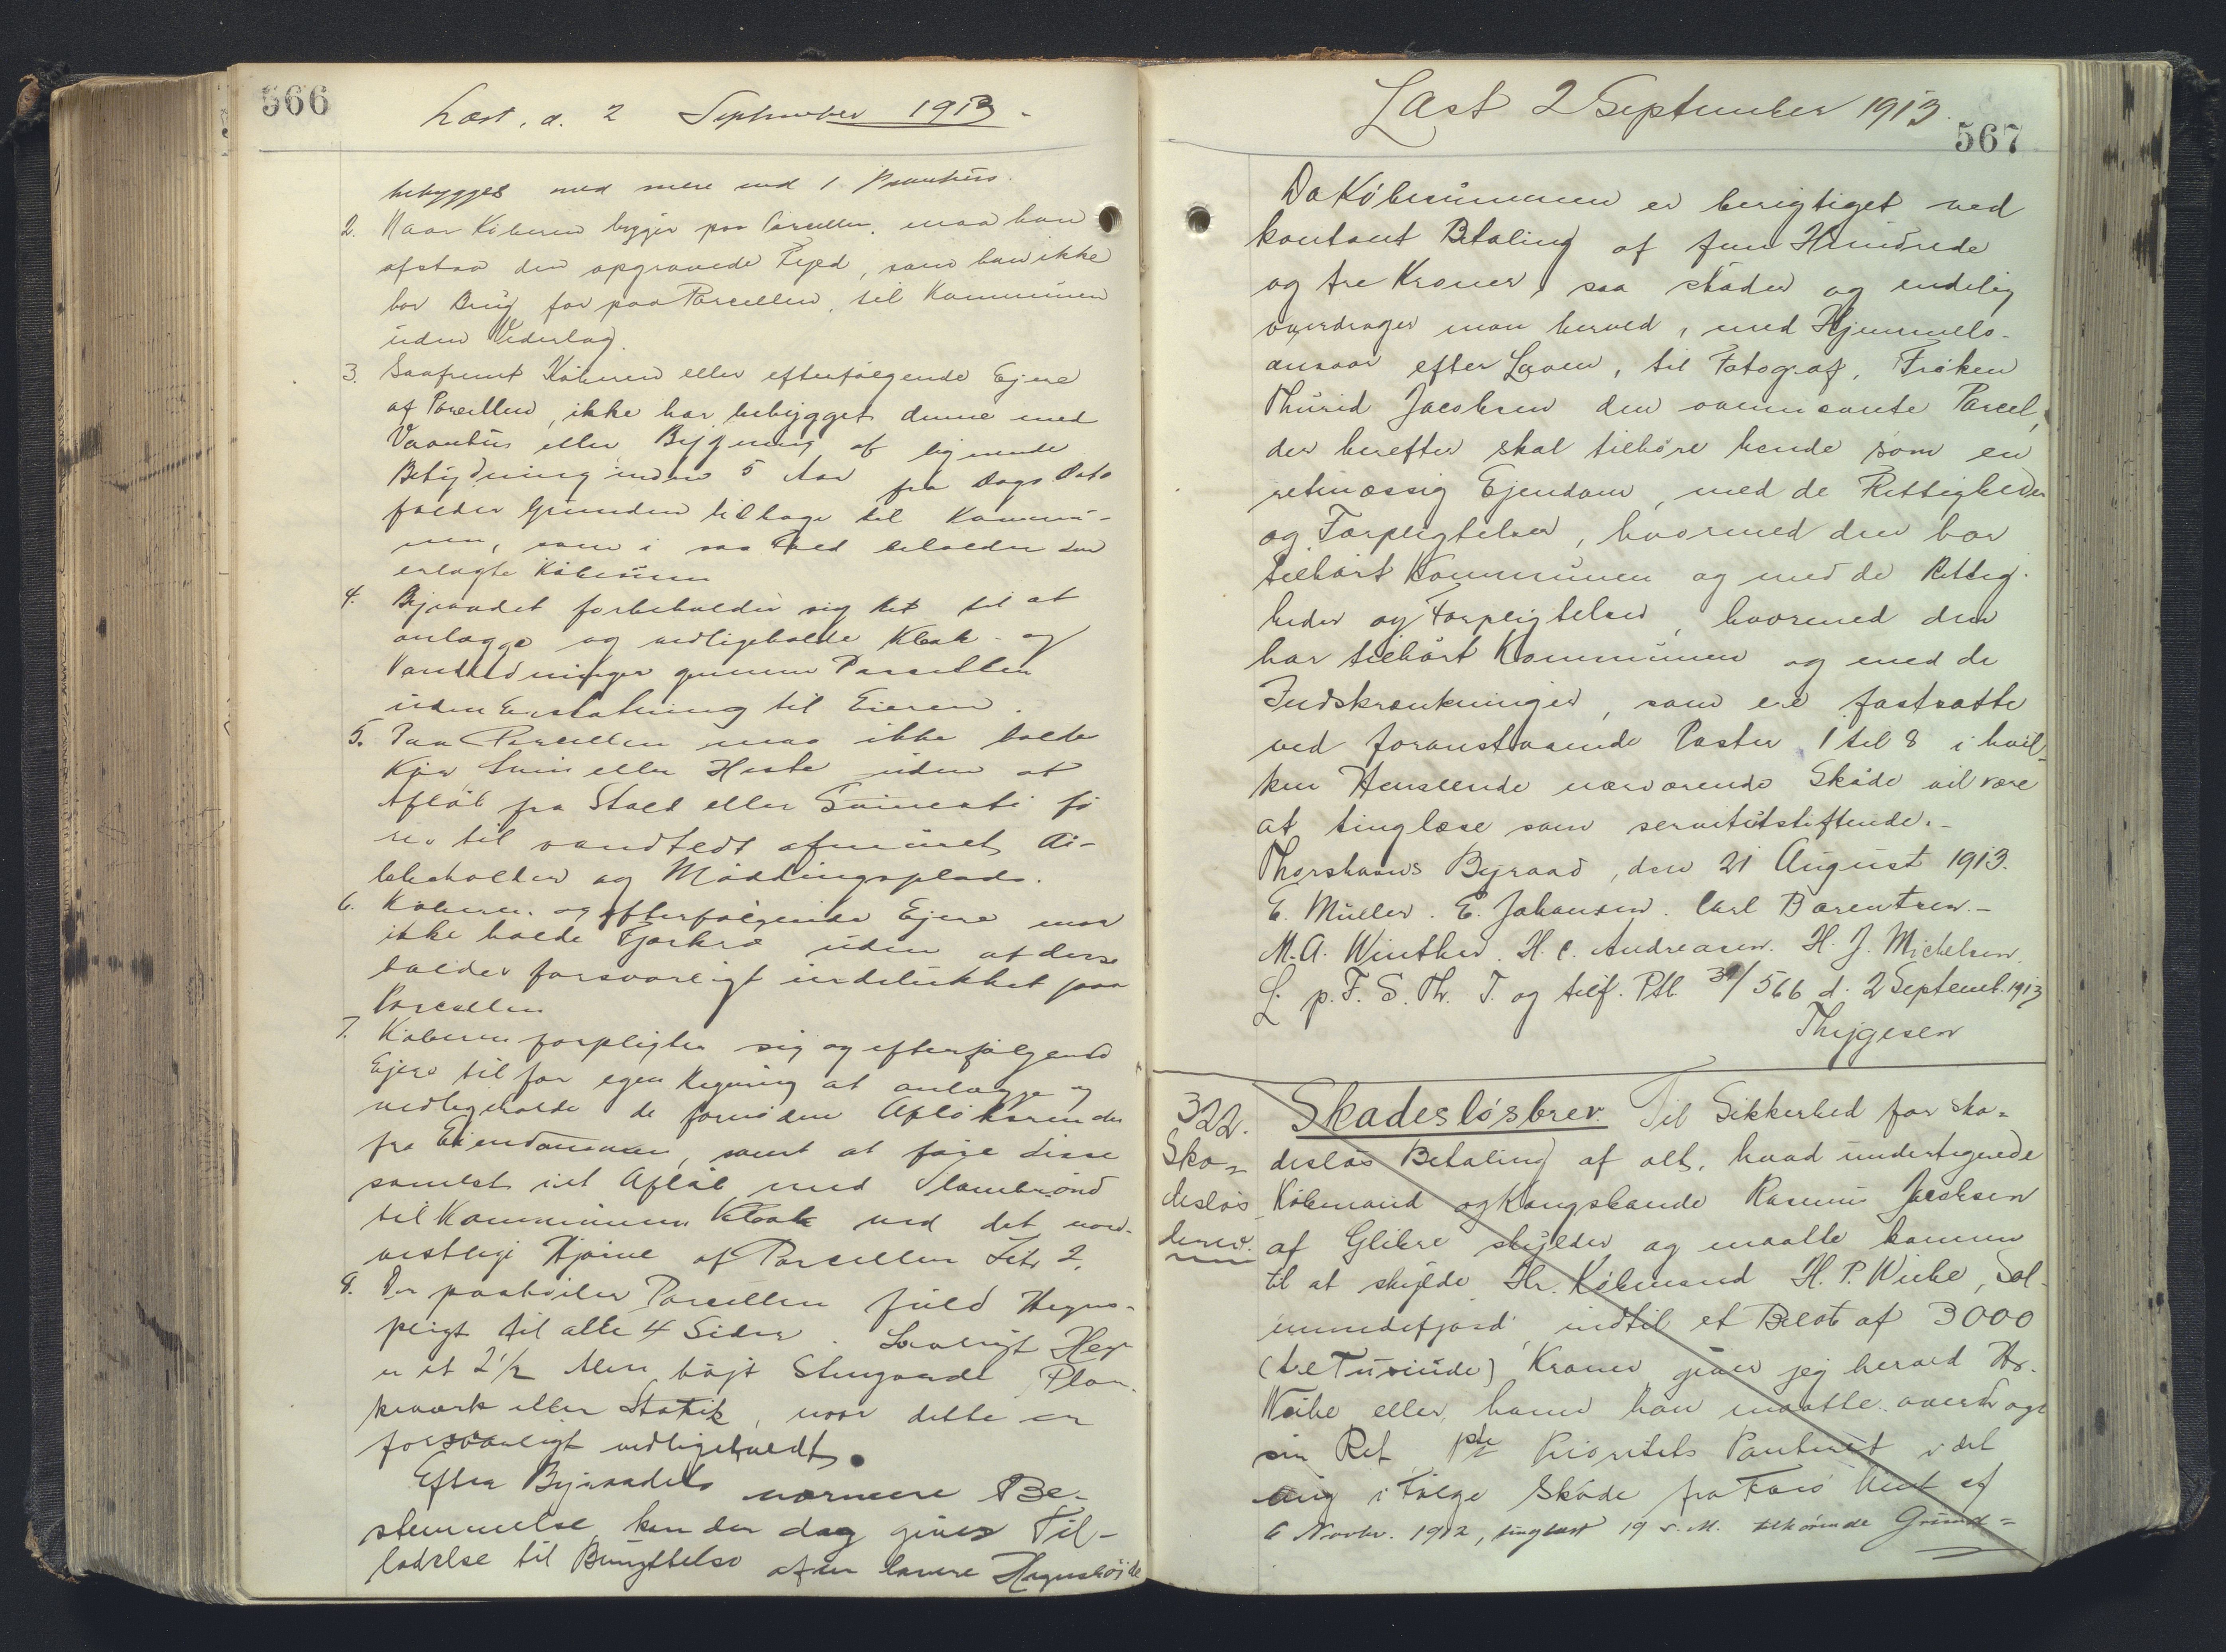 566
Læst. d. 2 September 1913.
bebygges med mere end 1 Vaanhus.
2. Naar Køberen bygger paa Parcellen, maa han
afstaa den opgravede Fyld, som han ikke
har Brug for paa Parcellen, til Kommunen
uden Vederlag.
3. Saafremt Køberen eller efterfølgende Ejere
af Parcellen, ikke har bebygget denne med
Vaanhus eller Bygning af lignende
Betydning inden 5 Aar fra Dags Dato
falder Grunden tilbage til Kommu-
nen, som i saa Fald beholder den
erlagte Købesum
4. Byraadet forbeholder sig Ret til at
anlægge og vedligeholde Kloak- og
Vandledninger gennem Parcellen
uden Erstatning til Eieren.
5. Paa Parcellen maa ikke holdes
Køer Svin eller Heste uden at
Afløb fra Stald eller Svinesti fø
res til vandtedt afmuret Ai-
lebeholder og Møddingsplads.
6. Køberen og efterfølgende Ejere maa
ikke holde Fjerkræ uden at desse
holdes forsvarligt indelukket paa
Parcellen
7. Køberen forpligter sig og efterfølgende
Ejere til for egen Regning at anlægge og
vedligeholde de fornødne Afløbsrender
fra Eiendommen, samt at føre disse
samlet i et Afløb med Slambrønd
til Kommunens Kloak ved det nord-
vestlige Hjørne af Parcellen Litr 2.
8. Der paahviler Parcellen fuld Hegns-
pligt til alle 4 Sider. Lovligt Heg
er et 2 1/2 Alen højt Stengærde, Plan-
keværk eller Stakit, naar dette er
forsvarligt vedligeholdt.
Efter Byraadets nærmere Be-
stemmelse kan der dog gives Til-
ladelse til Benyttelse af en lavere Hegnshøjde
Læst 2 September 1913.
567
Da Købesummen er berigtiget ved
kontant Betaling af fem Hundrede
og tre Kroner, saa skøder og endelig
overdrager man herved, med Hjemmels-
ansvar efter Loven, til Fotograf, Frøken
Thurid Jacobsen den ovennævnte Parcel,
der herefter skal tilhøre hende som en
retmæssig Ejendom, med de Rettigheder
og Forpligtelser, hvormed den har
tilhørt Kommunen og med de Rettig-
heder og Forpligtelser, hvormed den
har tilhørt Kommunen og med de
Indskrænkninger, som ere fastsatte
ved foranstaaende Poster 1 til 8 i hvil-
ken Henseende nærværende Skøde vil være
at tinglæse som servitutstiftende.-
Thorshavns Byraad, den 21 August 1913.
E. Müller. E. Johansen. Carl Barentsen.-
M.A. Winther. H.C. Andreasen. H. J. Michelsen.
L. p. F. S. Th. T. og tilf. Ptl 30/566 d. 2 Septemb. 1913
Thygesen
322. Skadesløsbrev. Til Sikkerhed for ska-
Ska- desløs Betaling af alt, hvad undertegnede
desløs Købmand og Kongsbonde Rasmus Jacobsen
brev. af Glibre skylder og maatte komme
til at skylde Hr. Købmand H. P. Weihe, Sol-
mundefjord indtil et Beløb af 3000
(tre Tusinde) Kroner giver jeg herved Hr.
Weihe eller hvem han maatte overdrage
sin Ret 1ste Prioritets Panteret i det
mig i Følge Skøde fra Færø Amt af
6 Novbr. 1912, tinglæst 19 s. M. tilhørende Grund-